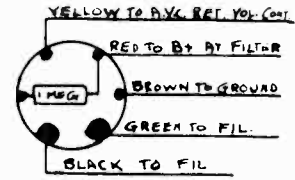 YELLOW TO A.V.C. RET. VOL. CONT.
RED TO B+ AT FILTER
1 MEG
BROWN TO GROUND
GREEN TO FIL.
BLACK TO FIL